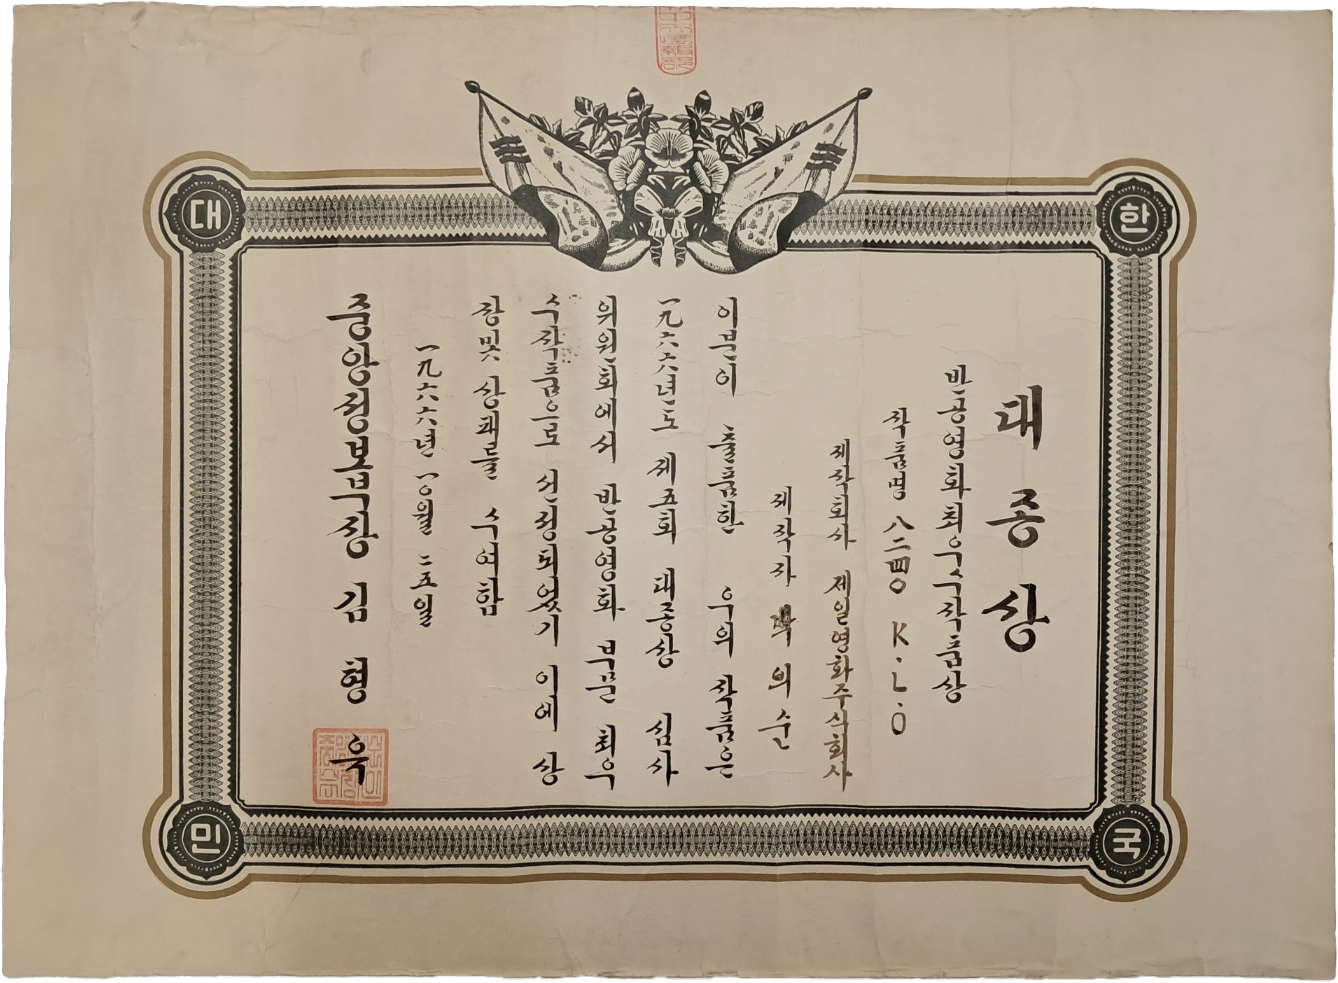 대 한 민 국
대종상
반공영화최우수작품상
작품명 八二四〇 K.L.O
제작회사 제일영화주식회사
제작자 의 순
이분이 출품한 우의 작품은
一九六六년도 제五회 대종상 심사
위원회에서 반공영화 부문 최우
수작품으로 선정되었기 이에 상
장및 상패를 수여함
一九六六년 一〇월 二五일
중앙정보부장 김 형 욱